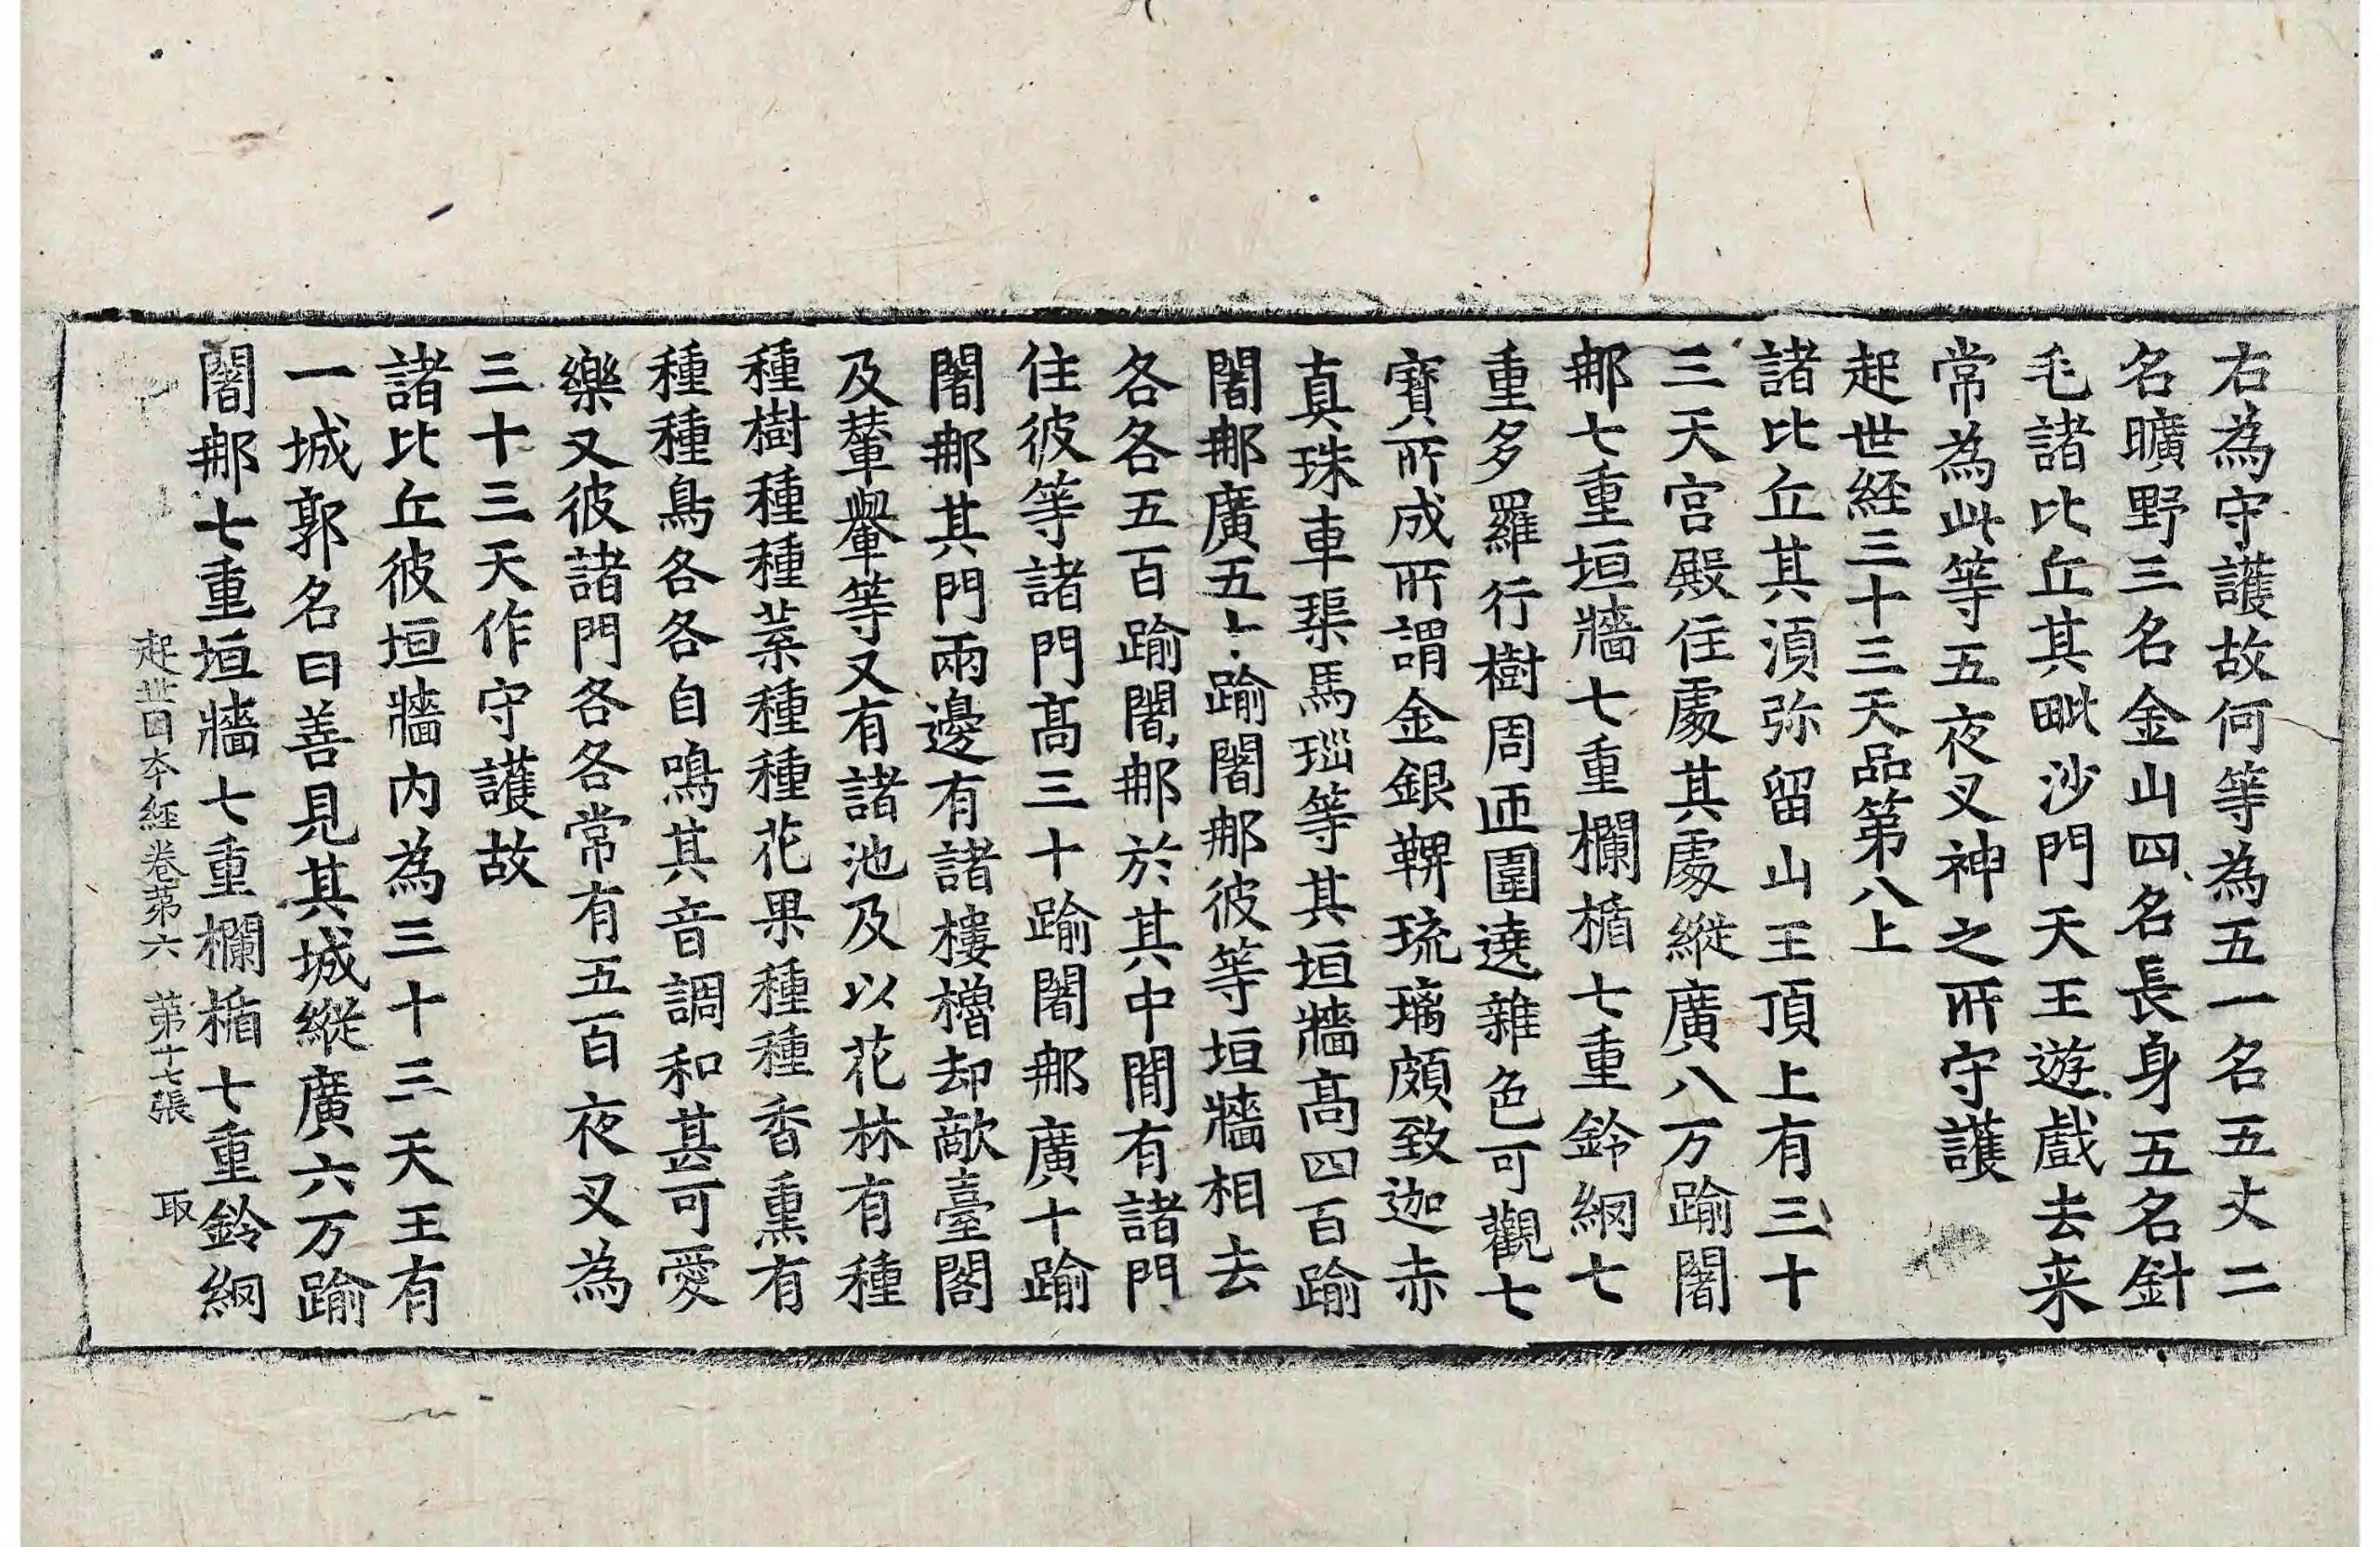 右為守護故何等為五一名五丈二
名曠野三名金山四名長身五名針
毛諸比丘其毗沙門天王遊戲去来
常為此等五夜叉神之所守護
起世経三十三天品第八上
諸比丘其湏弥留山王頂上有三十
三天宮殿住處其處縱廣八万踰闍
那七重垣牆七重欄楯七重鈴網七
重多羅行樹周迊圍遶雜色可觀七
寶所成所謂金銀鞞琉璃頗致迦赤
真珠車璖馬瑙等其垣牆高四百踰
闍那廣五十踰闍那彼等垣牆相去
各各五百踰闍那於其中閒有諸門
住彼等諸門高三十踰闍那廣十踰
闍那其門兩邊有諸樓櫓却敵臺閣
及輦轝等又有諸池及以花林有種
種樹種種葉種種花果種種香熏有
種種鳥各各自鳴其音調和甚可愛
樂又彼諸門各各常有五百夜叉為
三十三天作守護故
諸比丘彼垣牆内為三十三天王有
一城郭名曰善見其城縱廣六万踰
闍那七重垣牆七重欄楯七重鈴網
起世因本經卷第六 第十七張 取